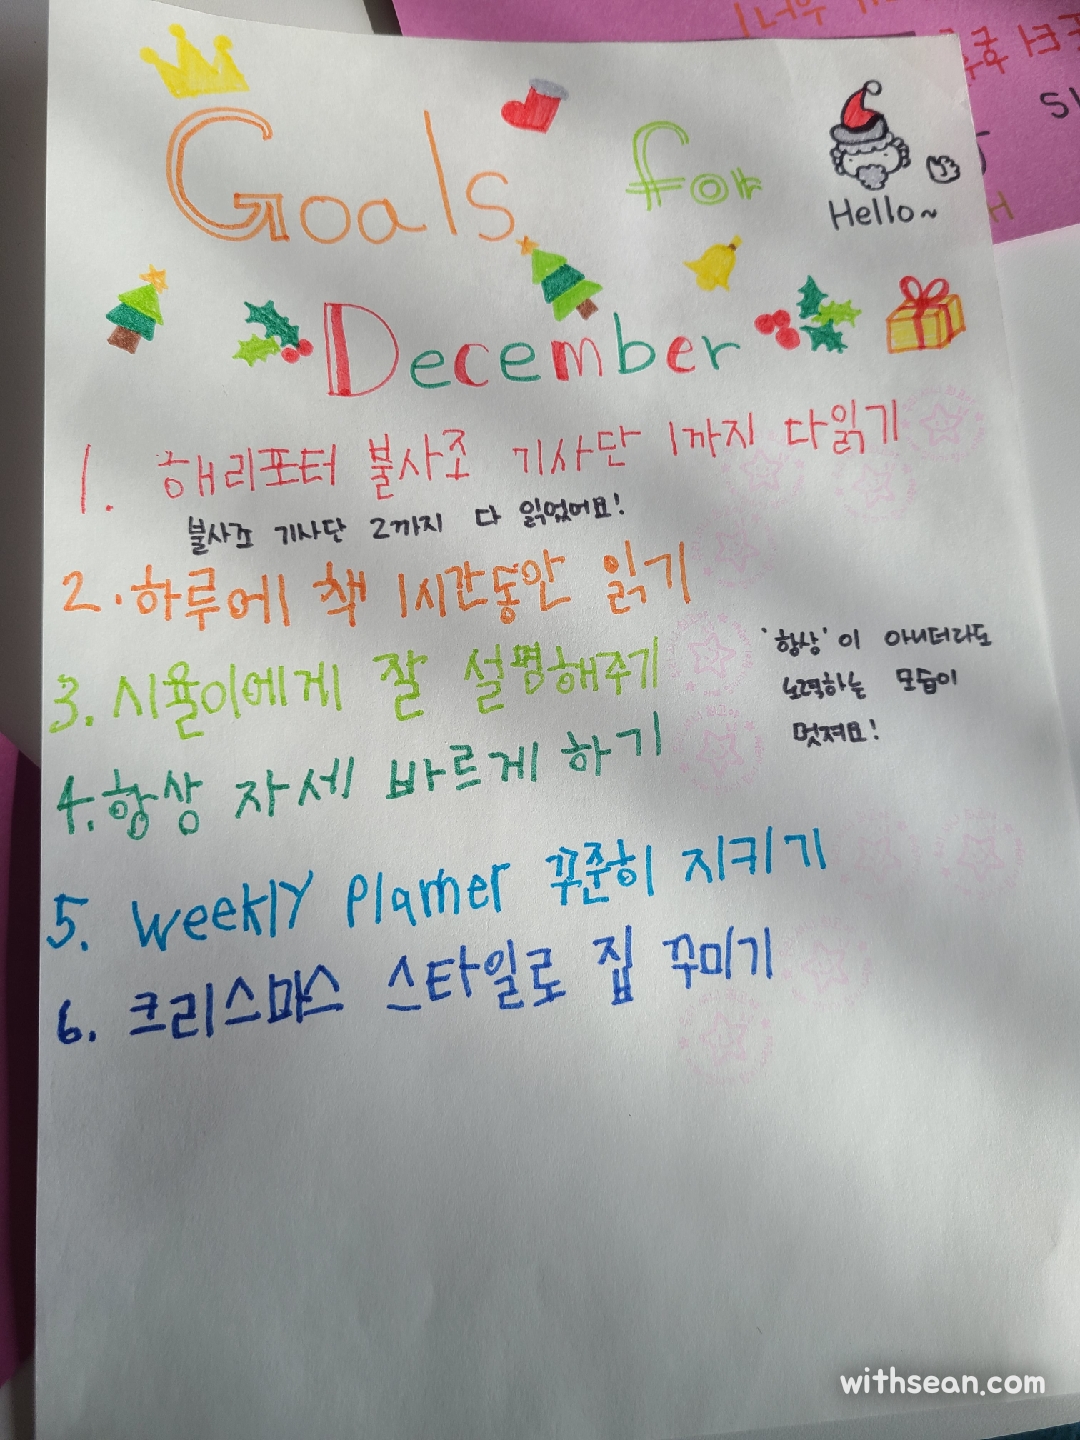 Goals for
Hello~
December
1. 해리포터 불사조 기사단 1까지 다읽기
불사조 기사단 2까지 다 읽었어요!
2. 하루에 책 1시간동안 읽기
3. 시율이에게 잘 설명해주기
'항상'이 아니더라도
노력하는 모습이
멋져요!
4. 항상 자세 바르게 하기
5. weeklY Planner 꾸준히 지키기
6. 크리스마스 스타일로 집 꾸미기
withsean.com